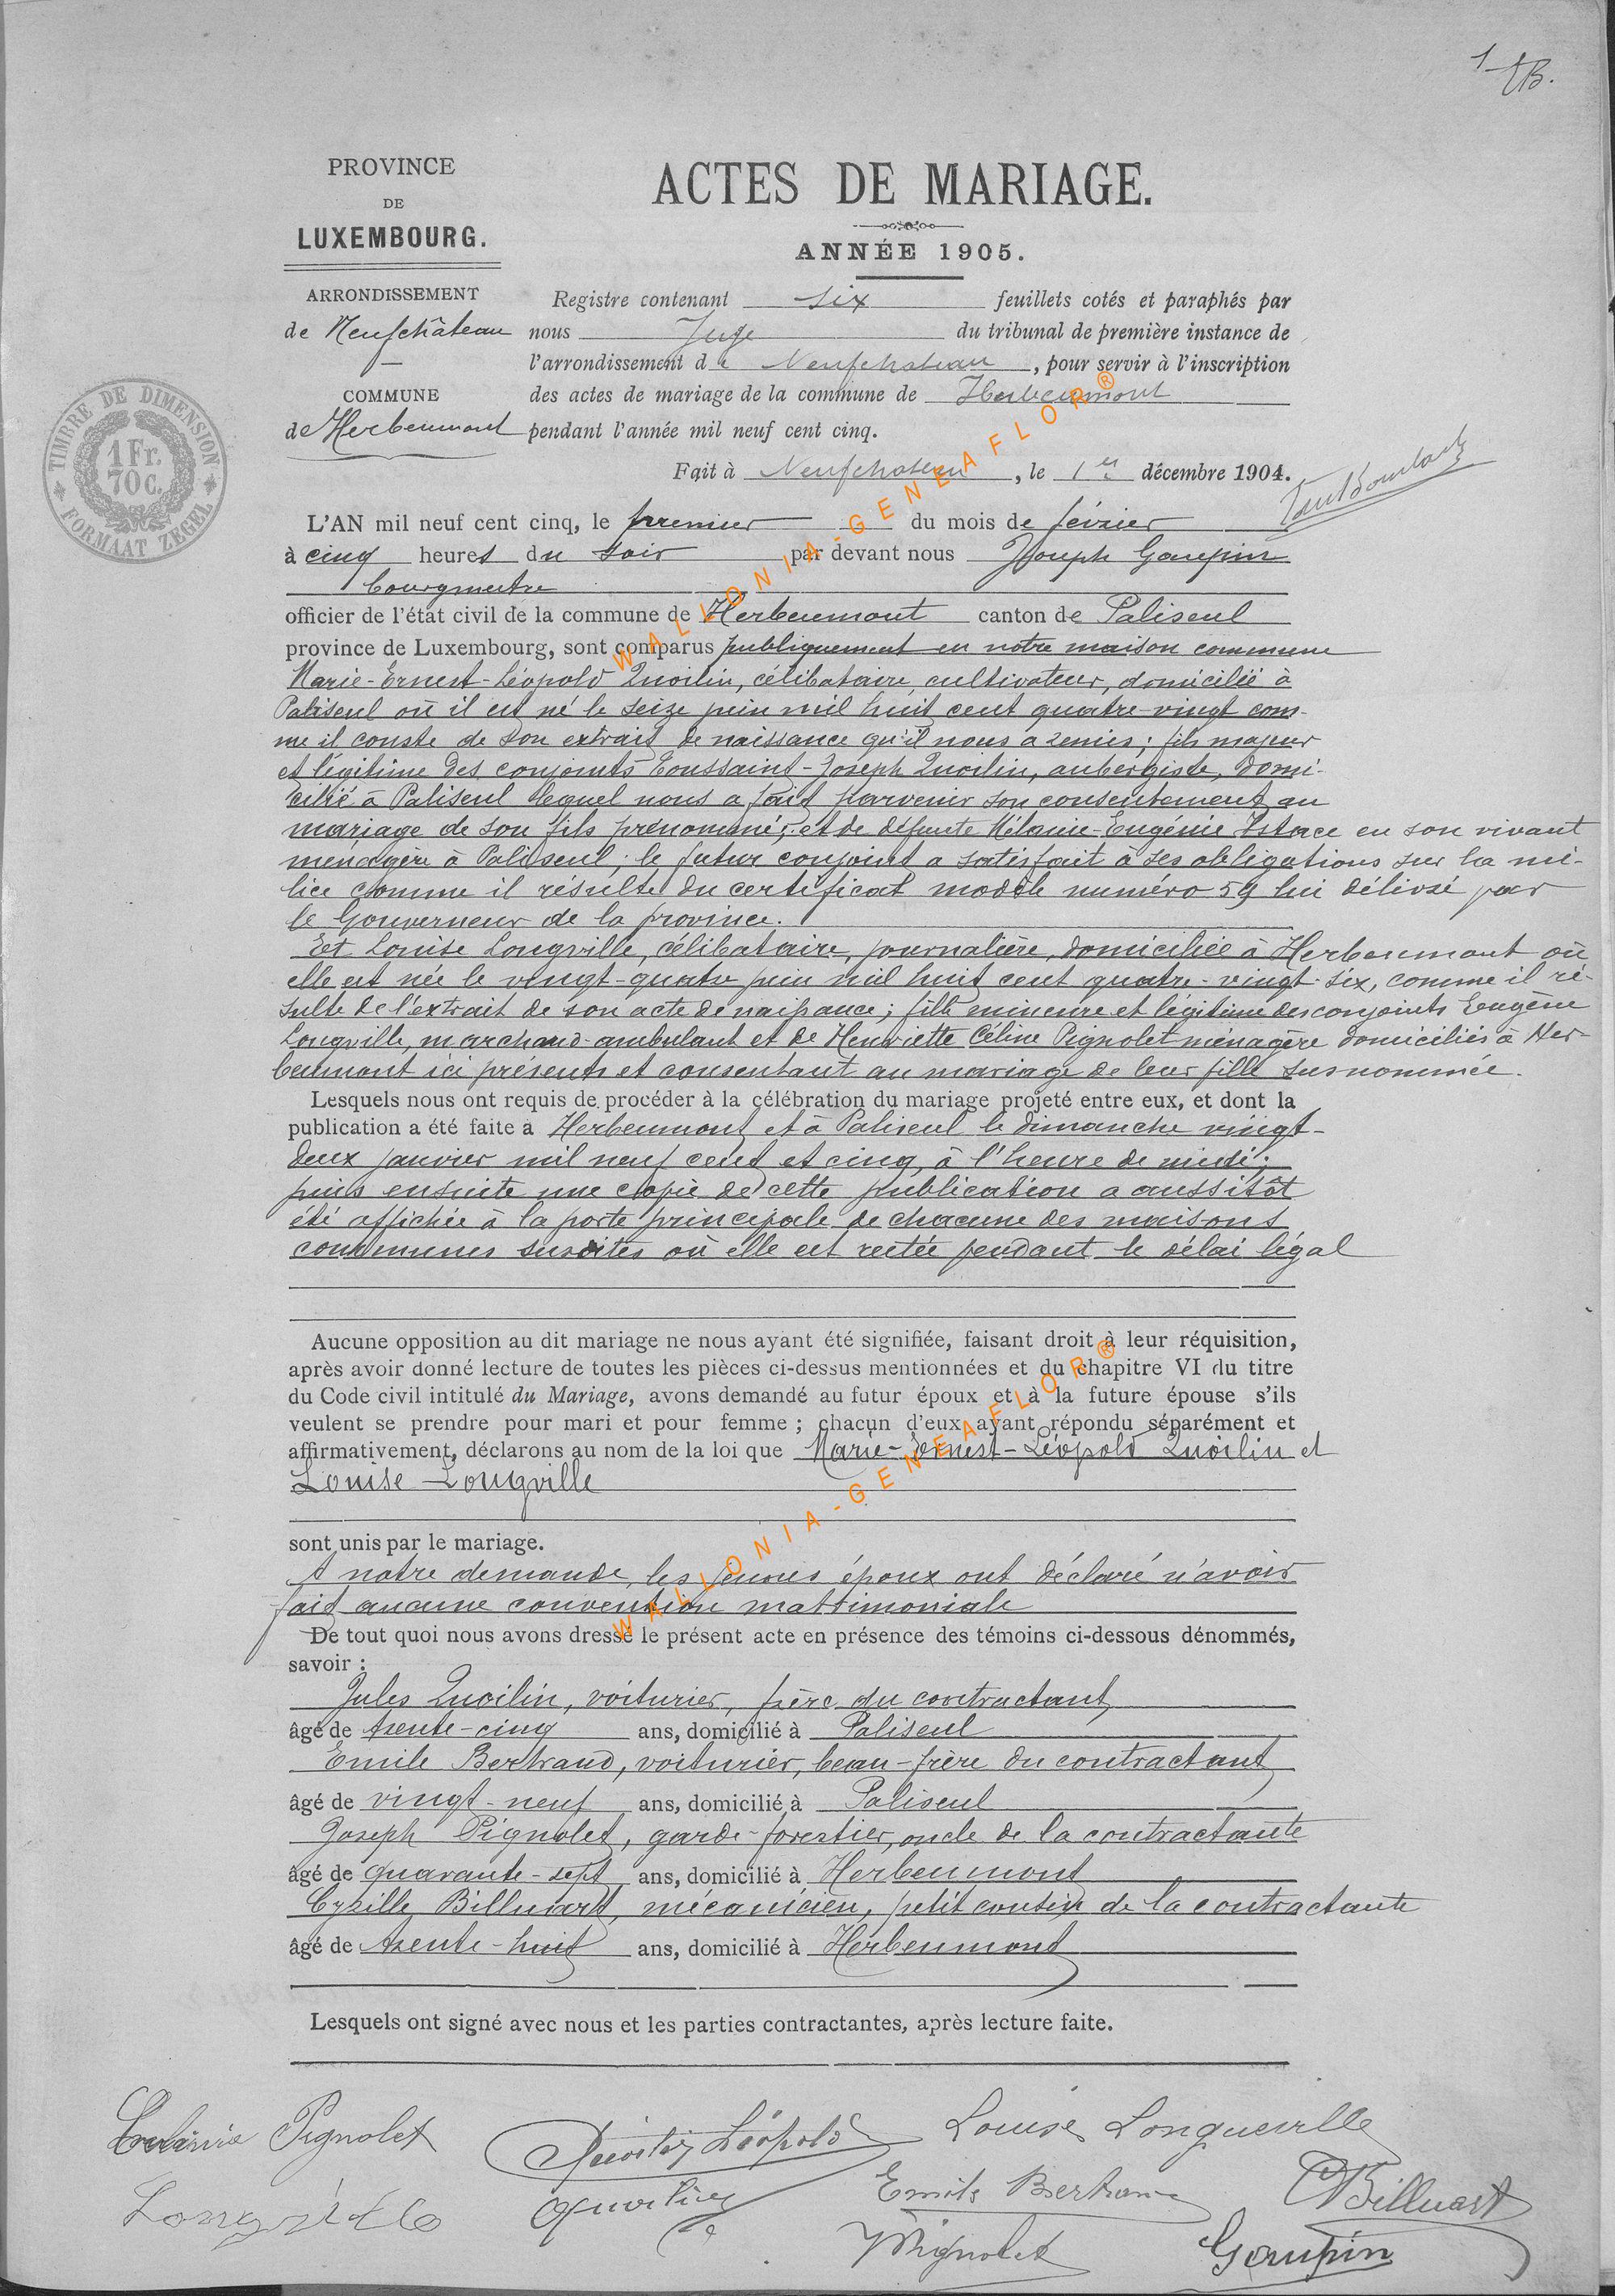 1
PROVINCE
DE
LUXEMBOURG.
ARRONDISSEMENT
de Neufchâteau
COMMUNE
de Herbeumont
TIMBRE DE DIMENSION
1 Fr.
70 C.
FORMAAT ZEGEL
ACTES DE MARIAGE.
ANNÉE 1905.
Registre contenant six feuillets cotés et paraphés par
nous Juge du tribunal de première instance de
l'arrondissement de Neufchateau, pour servir à l'inscription
des actes de mariage de la commune de Herbeumont
pendant l'année mil neuf cent cinq.
Fait à Neufchateau, le 1er décembre 1904.
L'AN mil neuf cent cinq, le premier du mois de février
à cinq heures du soir par devant nous Joseph Goupin
bourgmestre
officier de l'état civil de la commune de Herbeumont canton de Paliseul
province de Luxembourg, sont comparus publiquement en notre maison commune
Marie-Ernest-Léopold Quoilin, célibataire, cultivateur, domicilié à
Paliseul où il est né le seize juin mil huit cent quatre-vingt com-
me il conste de son extrait de naissance qu'il nous a remis; fils majeur
et légitime des conjoints Toussaint-Joseph Quoilin, aubergiste, domi-
cilié à Paliseul lequel nous a fait parvenir son consentement au
mariage de son fils prénommé; et de défunte Mélanie-Eugénie Istace en son vivant
ménagère à Paliseul; le futur conjoint a satisfait à ses obligations sur la mi-
lice comme il résulte du certificat modèle numéro 59 lui délivré par
le Gouverneur de la province.
Et Louise Longville, célibataire, journalière, domiciliée à Herbeumont où
elle est née le vingt-quatre juin mil huit cent quatre-vingt-six, comme il ré-
sulte de l'extrait de son acte de naissance; fille mineure et légitime des conjoints Eugène
Longville, marchand-ambulant et de Henriette Céline Pignolet ménagère domiciliés à Her-
beumont ici présents et consentant au mariage de leur fille susnommée.
Lesquels nous ont requis de procéder à la célébration du mariage projeté entre eux, et dont la
publication a été faite à Herbeumont et à Paliseul le dimanche vingt-
deux janvier mil neuf cent et cinq, à l'heure de midi;
puis ensuite une copie de cette publication a aussitôt
été affichée à la porte principale de chacune des maisons
communes susdites où elle est restée pendant le délai légal
Aucune opposition au dit mariage ne nous ayant été signifiée, faisant droit à leur réquisition,
après avoir donné lecture de toutes les pièces ci-dessus mentionnées et du chapitre VI du titre
du Code civil intitulé du Mariage, avons demandé au futur époux et à la future épouse s'ils
veulent se prendre pour mari et pour femme ; chacun d'eux ayant répondu séparément et
affirmativement, déclarons au nom de la loi que Marie-Ernest-Léopold Quoilin et
Louise Longville
sont unis par le mariage.
A notre demande, les futurs époux ont déclaré n'avoir
fait aucune convention matrimoniale
De tout quoi nous avons dressé le présent acte en présence des témoins ci-dessous dénommés,
savoir :
Jules Quoilin, voiturier, frère du contractant
âgé de trente-cinq ans, domicilié à Paliseul
Emile Bertrand, voiturier, beau-frère du contractant
âgé de vingt-neuf ans, domicilié à Paliseul
Joseph Pignolet, garde-forestier, oncle de la contractante
âgé de quarante-sept ans, domicilié à Herbeumont
Cyrille Billuart, mécanicien, petit cousin de la contractante
âgé de trente-huit ans, domicilié à Herbeumont
Lesquels ont signé avec nous et les parties contractantes, après lecture faite.
Pignolet Quoilin Léopold Louise Longueville
Longville Quoilin Emile Bertrand Billuart
Pignolet Goupin
WALLONIA-GENEAFLOR®
WALLONIA-GENEAFLOR®